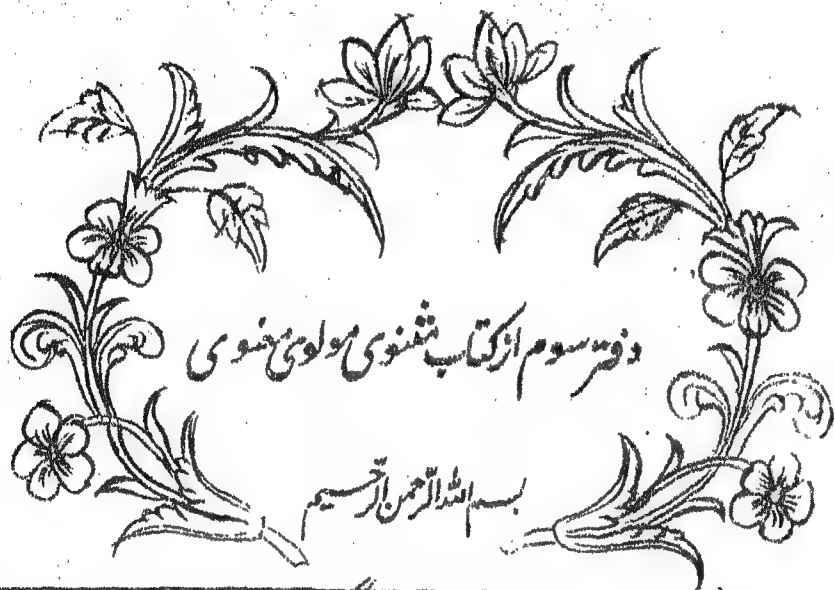 دفتر سوم از کتاب مثنوی مولوی معنوی
بسم الله الرحمن الرحیم